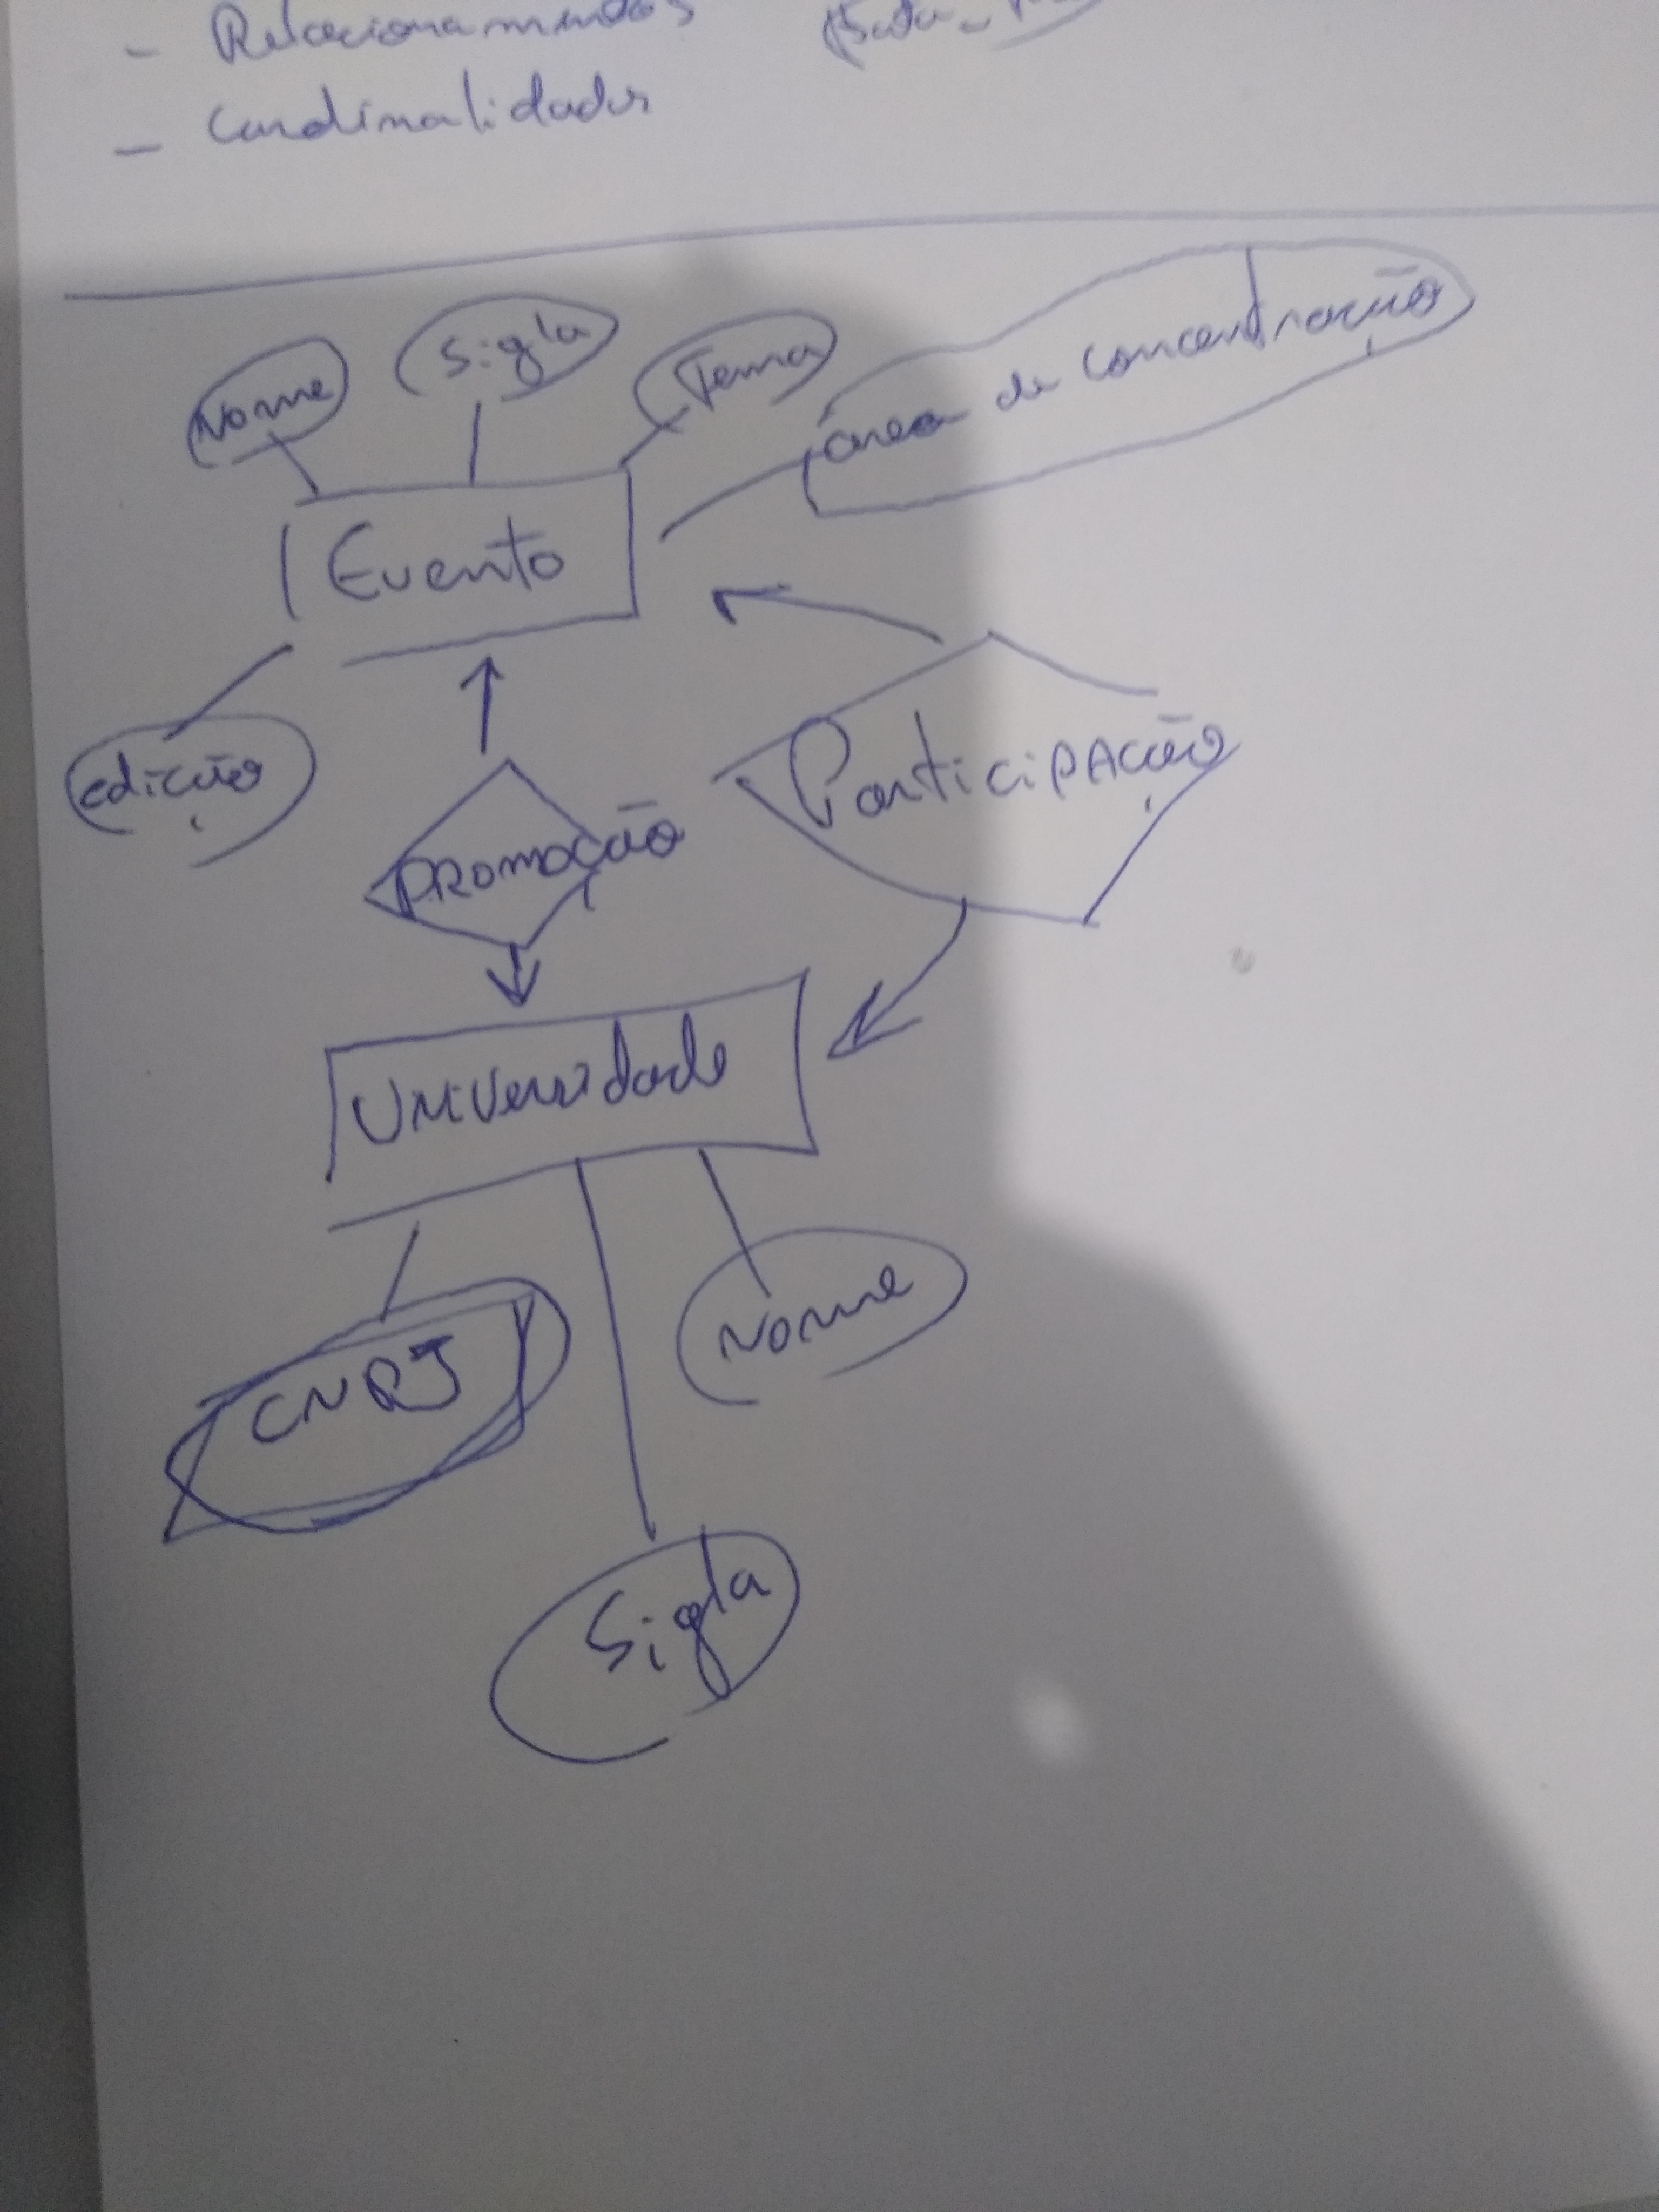 - Relacionamentos
- Cardinalidades
Nome
Sigla
Tema
área de concentração
Evento
edição
Promoção
Participação
Universidade
CNPJ
Nome
Sigla